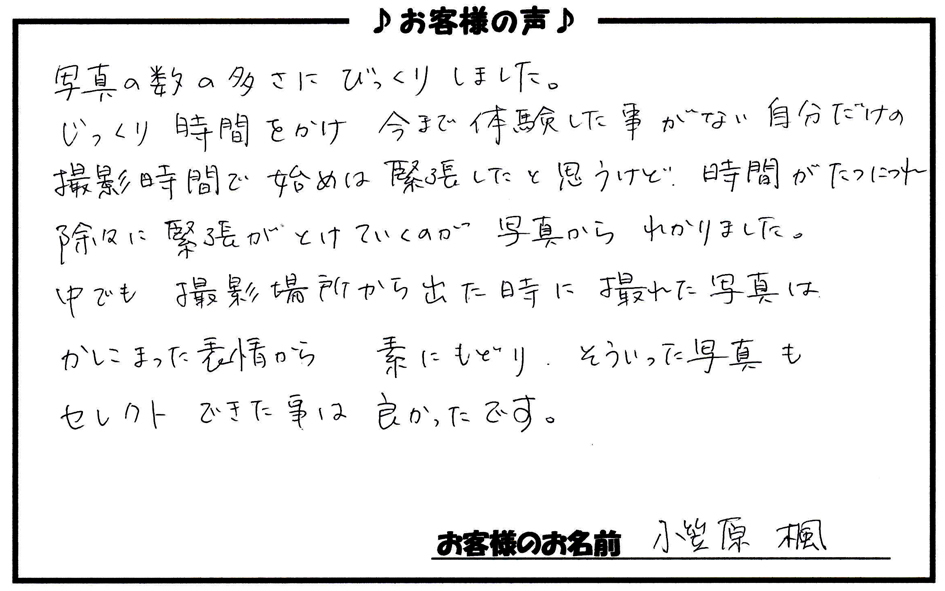 ♪お客様の声♪
写真の数の多さにびっくりしました。
じっくり時間をかけ 今まで体験した事がない自分だけの
撮影時間で始めは緊張したと思うけど、時間がたつにつれ
除々に緊張がとけていくのが写真からわかりました。
中でも 撮影場所から出た時に撮れた写真は
かしこまった表情から 素にもどり、そういった写真も
セレクトできた事は良かったです。
お客様のお名前 小笠原 楓